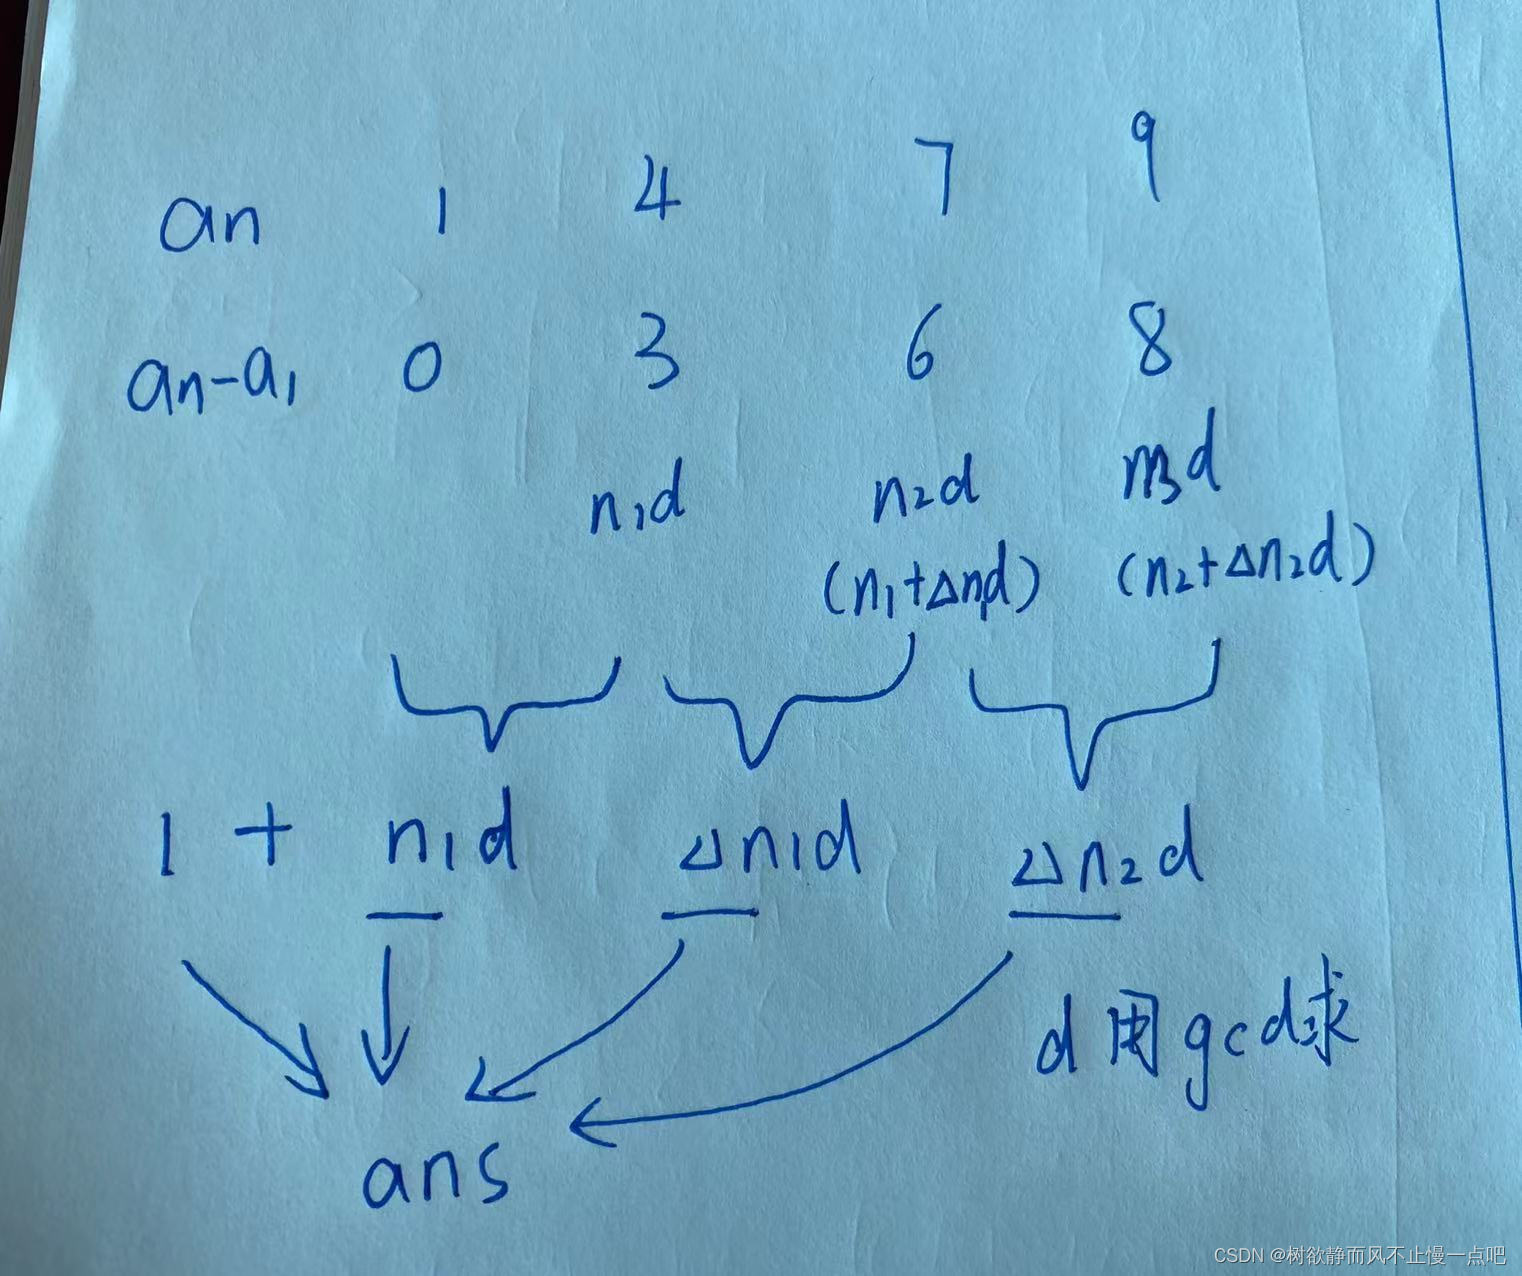 an 1 4 7 9
an-a₁ 0 3 6 8
n₁d n₂d n3d
(n₁+Δn₁d) (n₂+Δn₂d)
1 + n₁d Δn₁d Δn₂d
d用gcd求
ans
CSDN @树欲静而风不止慢一点吧